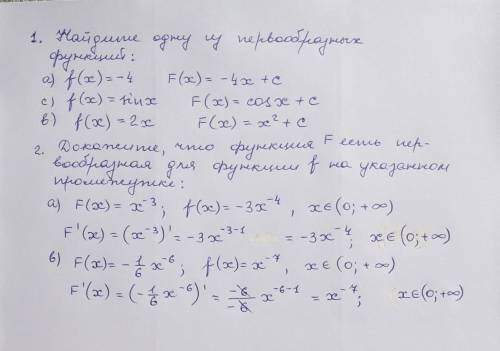 1. Найдите одну из первообразных
функций:
а) f(x) = -4 F(x) = -4x + c
c) f(x) = sinx F(x) = cosx + c
в) f(x) = 2x F(x) = x² + c
2. Докажите, что функция F есть пер-
вообразная для функции f на указанном
промежутке:
а) F(x) = x⁻³; f(x) = -3x⁻⁴, x∈(0; +∞)
F'(x) = (x⁻³)' = -3x⁻³⁻¹ = -3x⁻⁴; x∈(0; +∞)
в) F(x) = -1/6 x⁻⁶; f(x) = x⁻⁷, x∈(0; +∞)
F'(x) = (-1/6 x⁻⁶)' = -6/-6 x⁻⁶⁻¹ = x⁻⁷; x∈(0; +∞)